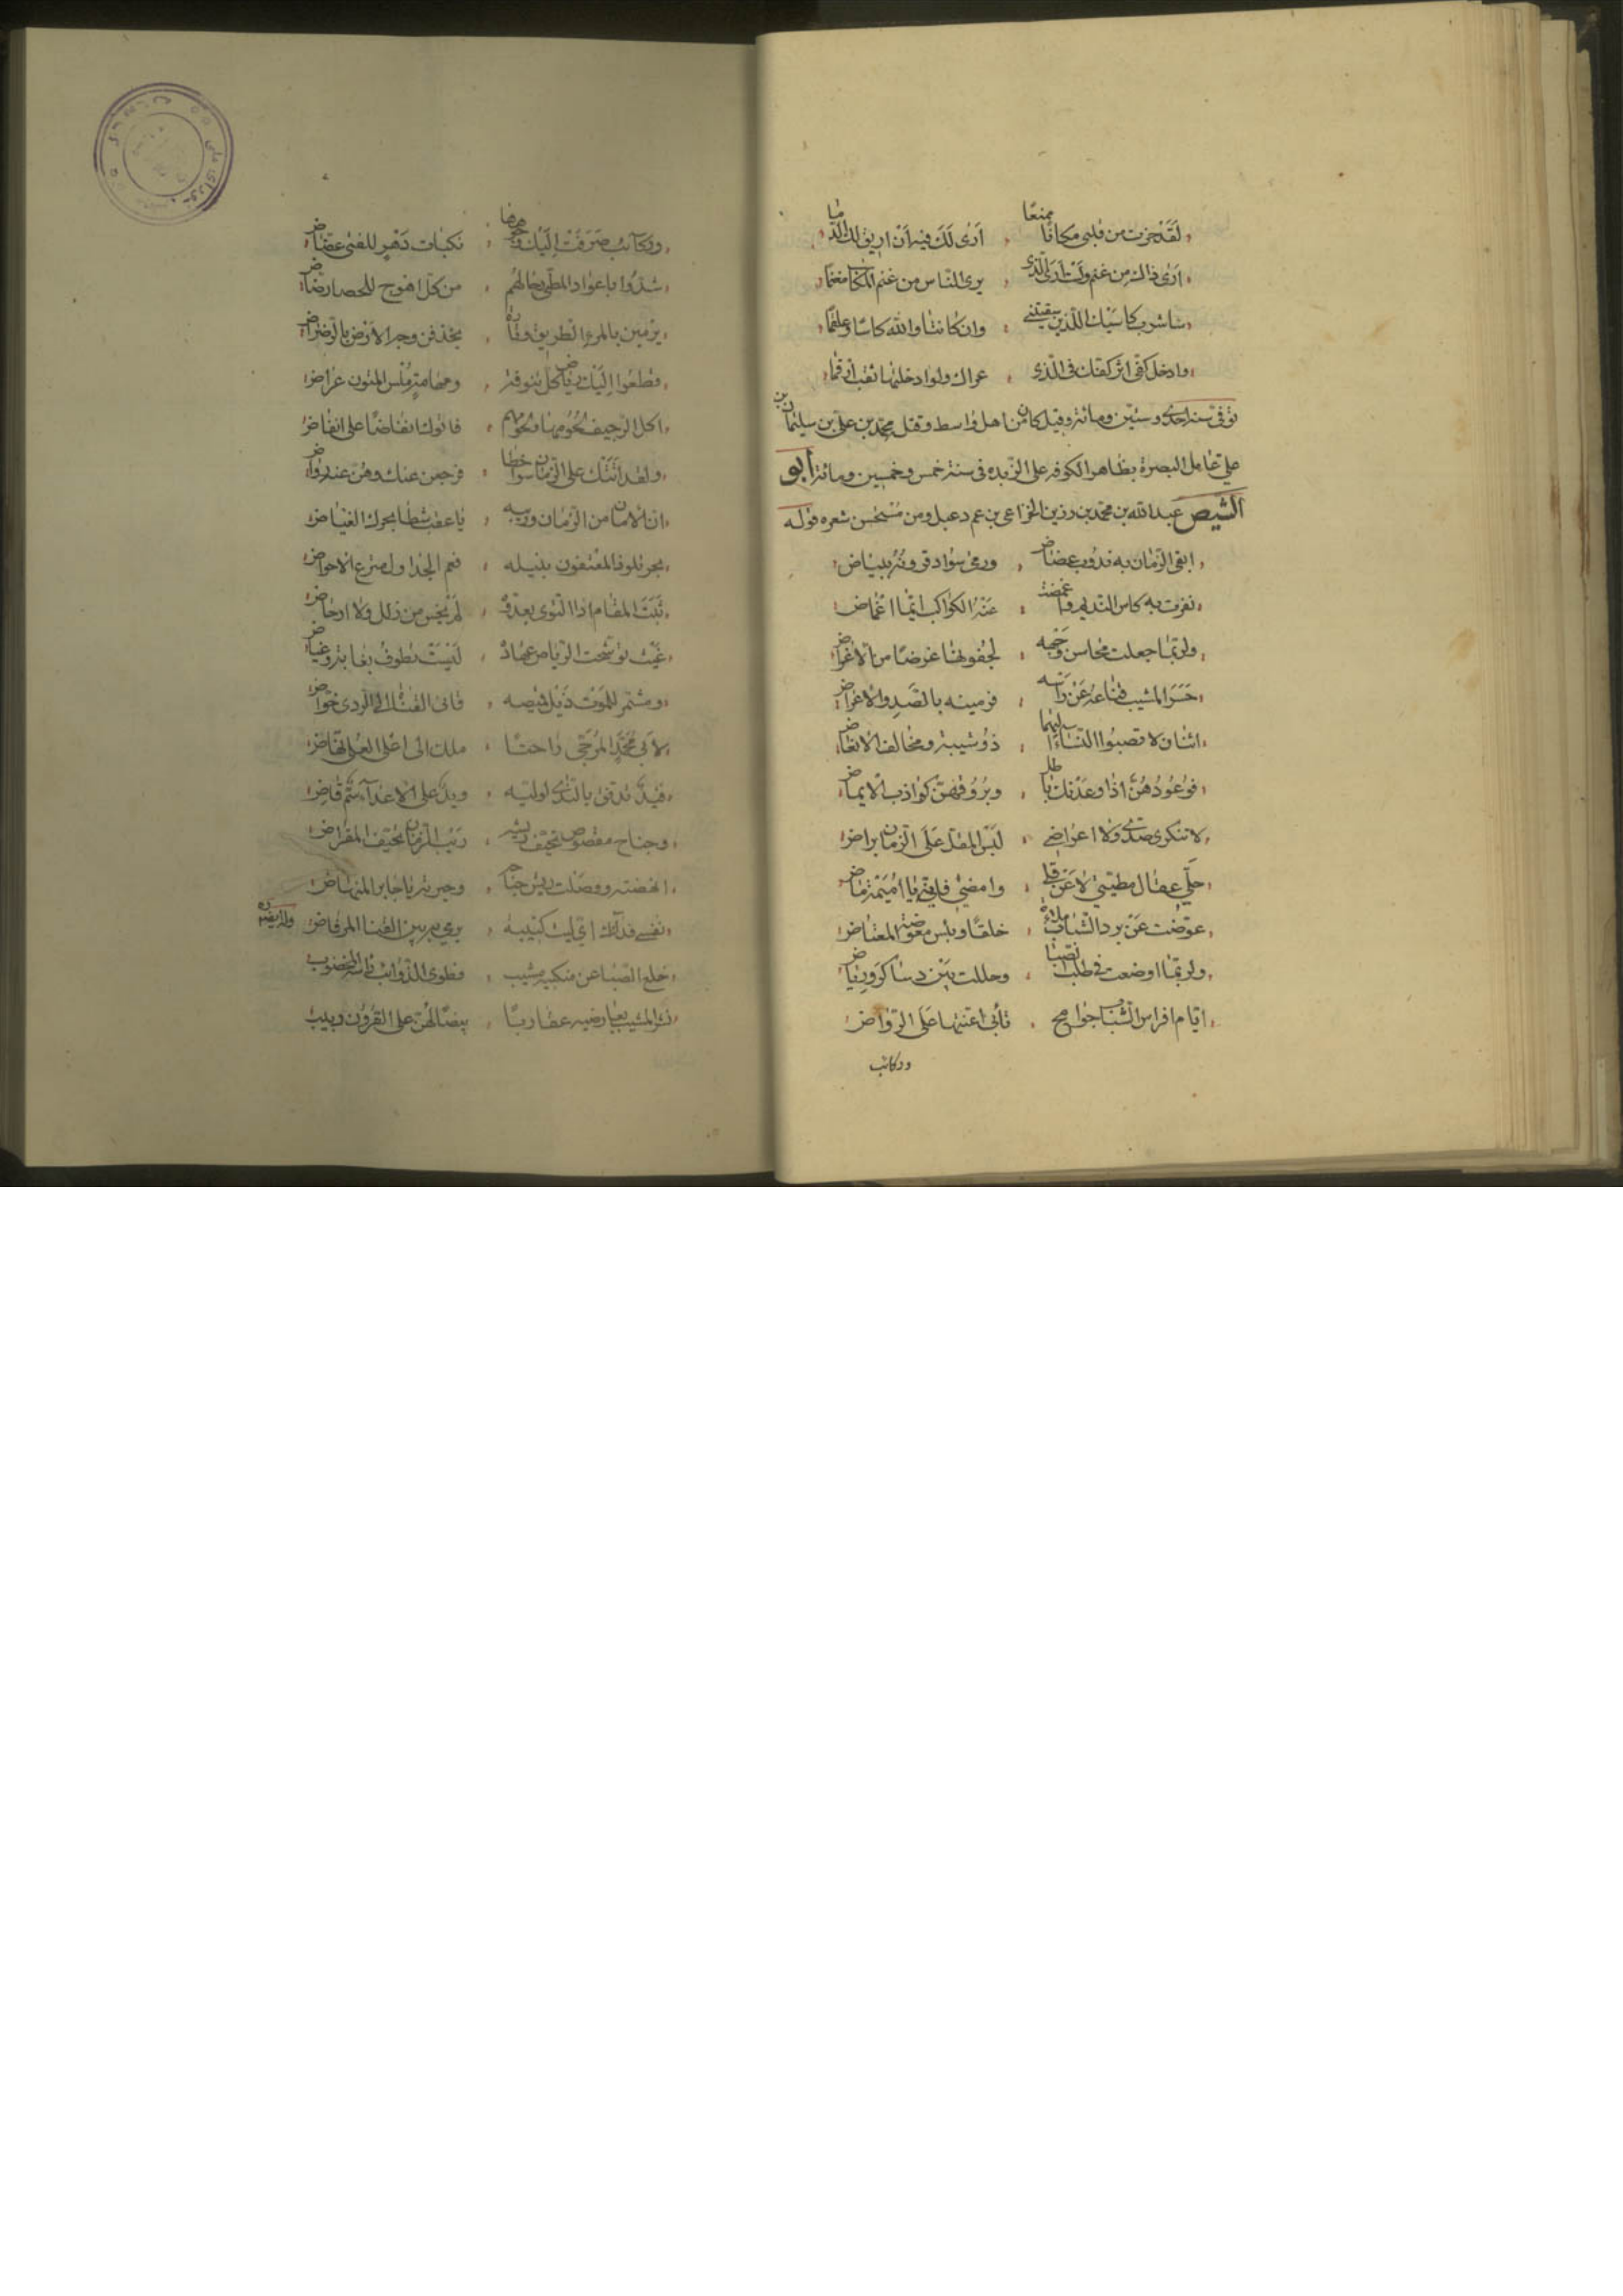 لَقَدْ حزت من قلبى مكانًا ممنعًا ، اَرٰى لَكَ فيه اَنْ اريق لك الدما
ارٰى ذاك من غنم ولست ارى الّذى ، يرى النّاس من غنم مغنما
ساشرب كاسَيْك اللّذين سقيتنى ، وان كانتا والله كاسًا وعلقمًا
وادخل كفّى اثر كفّك فى الّذى ، عراك ولو ادخلتها نقب ارقما
توفى سنة احدى وستين ومائة وقيل كان من اهل واسط وقتل محمد بن على بن سليمان بن
على عامل البصرة بظاهر الكوفه على الزّندقه فى سنة خمس وخمسين ومائة ابو
الشيص عبد الله بن محمد بن رزين الخزاعى بن عم دعبل ومن مستحسن شعره قوله
ابقى الزّمان به ندوب عضاض ، ورمى سواد قرونه ببياض
نفرت به كاس النديم واغمضت ، عَنْه الكواكب ايّما اغماض
ولربّما جعلت محاسن وجهه ، لجفونها غرضًا من الاغراض
حَسَرَ المشيب قناعه عَنْ رأسه ، فرمينه بالصّد والاعراض
اثنان لا تصبوا النّساء اليهما ، ذو شيبة ومحالف الانفاض
فوعودُهُنَّ اذا وعدنك باطل ، وبروقهنّ كواذب الايماض
لا تنكرى صدّى ولا اعراضى ، لَيْسَ المقلّ عَلَى الزّمان براض
حلّى عقال مطيّتى لا عَنْ قلى ، وامضى فانى يا اُمَيْمَة ماض
عوّضت عَنْ برد الشباب ملاءة ، خلقًا وبئس معوضة المعتاض
ولربّما اوضعت فى طلب الصّبا ،
ايّام افراس الشباب جوامح ، تأبى اعنّتها عَلَى الروّاض
وركائب
وركآئب صَرَفَتْ اِلَيْك وجوهها ، نكبات دَهْرٍ للفتى عضّاض
شدّوا باعواد المطىّ رحالهم ، من كلّ اهوج للحصا رضّاض
يرمين بالمرء الطريق وتارة ، يحذفن وجه الارض بالرضراض
قطعوا اِلَيْك رياض كلّ تنوفة ، ومهامه مُلس المتون عراض
اكل الوجيف لحومها ولحومهم ، فاتوك انقاضًا على انقاض
ولقد اَتَتْك على الزّمان سواخطا ، فرجعن عنك وهنّ عنه رواض
انّ الامان من الزّمان وريبه ، يا عقب شطّا بحرك الفيّاض
بحر يلوذ المعتفون بنيله ، فعم الجداول مترع الاحواض
ثَبَتَ المقام اذا التوى بعدوّه ، لَمْ يخش من زلل ولا ادحاض
غيث توشّحت الرّياض عهاده ، لَيْث يطوف بغابة وغياض
ومشمّر للموت ذَيْل قميصه ، قانى القناة الى الردى خوّاض
لابى محمّدٍ المرجّى راحتا ، ملك الى اعلى العلى نهّاض
فيدٌ تدفّق بالنّدى لوليّه ، ويدٌ على الاعدآء سمّ قاض
وجناح مقصوص تحيّف ريشه ، رَيْب الزّمان تحيّف المقراض
انهضته ووصلت ريش جناحه ، وجبرته يا جابر المنهاض
نفسى فداؤك اىّ ليث كتيبة ، يرمى به بين القنا المرفاض وله ايضا
خلع الصّبا عن منكبيه مشيب ، فطوى الذّوائب رأسه المخضوب
نشر المشيب بعارضيه عقاربًا ، بيضًا لهنّ على القرون دبيب